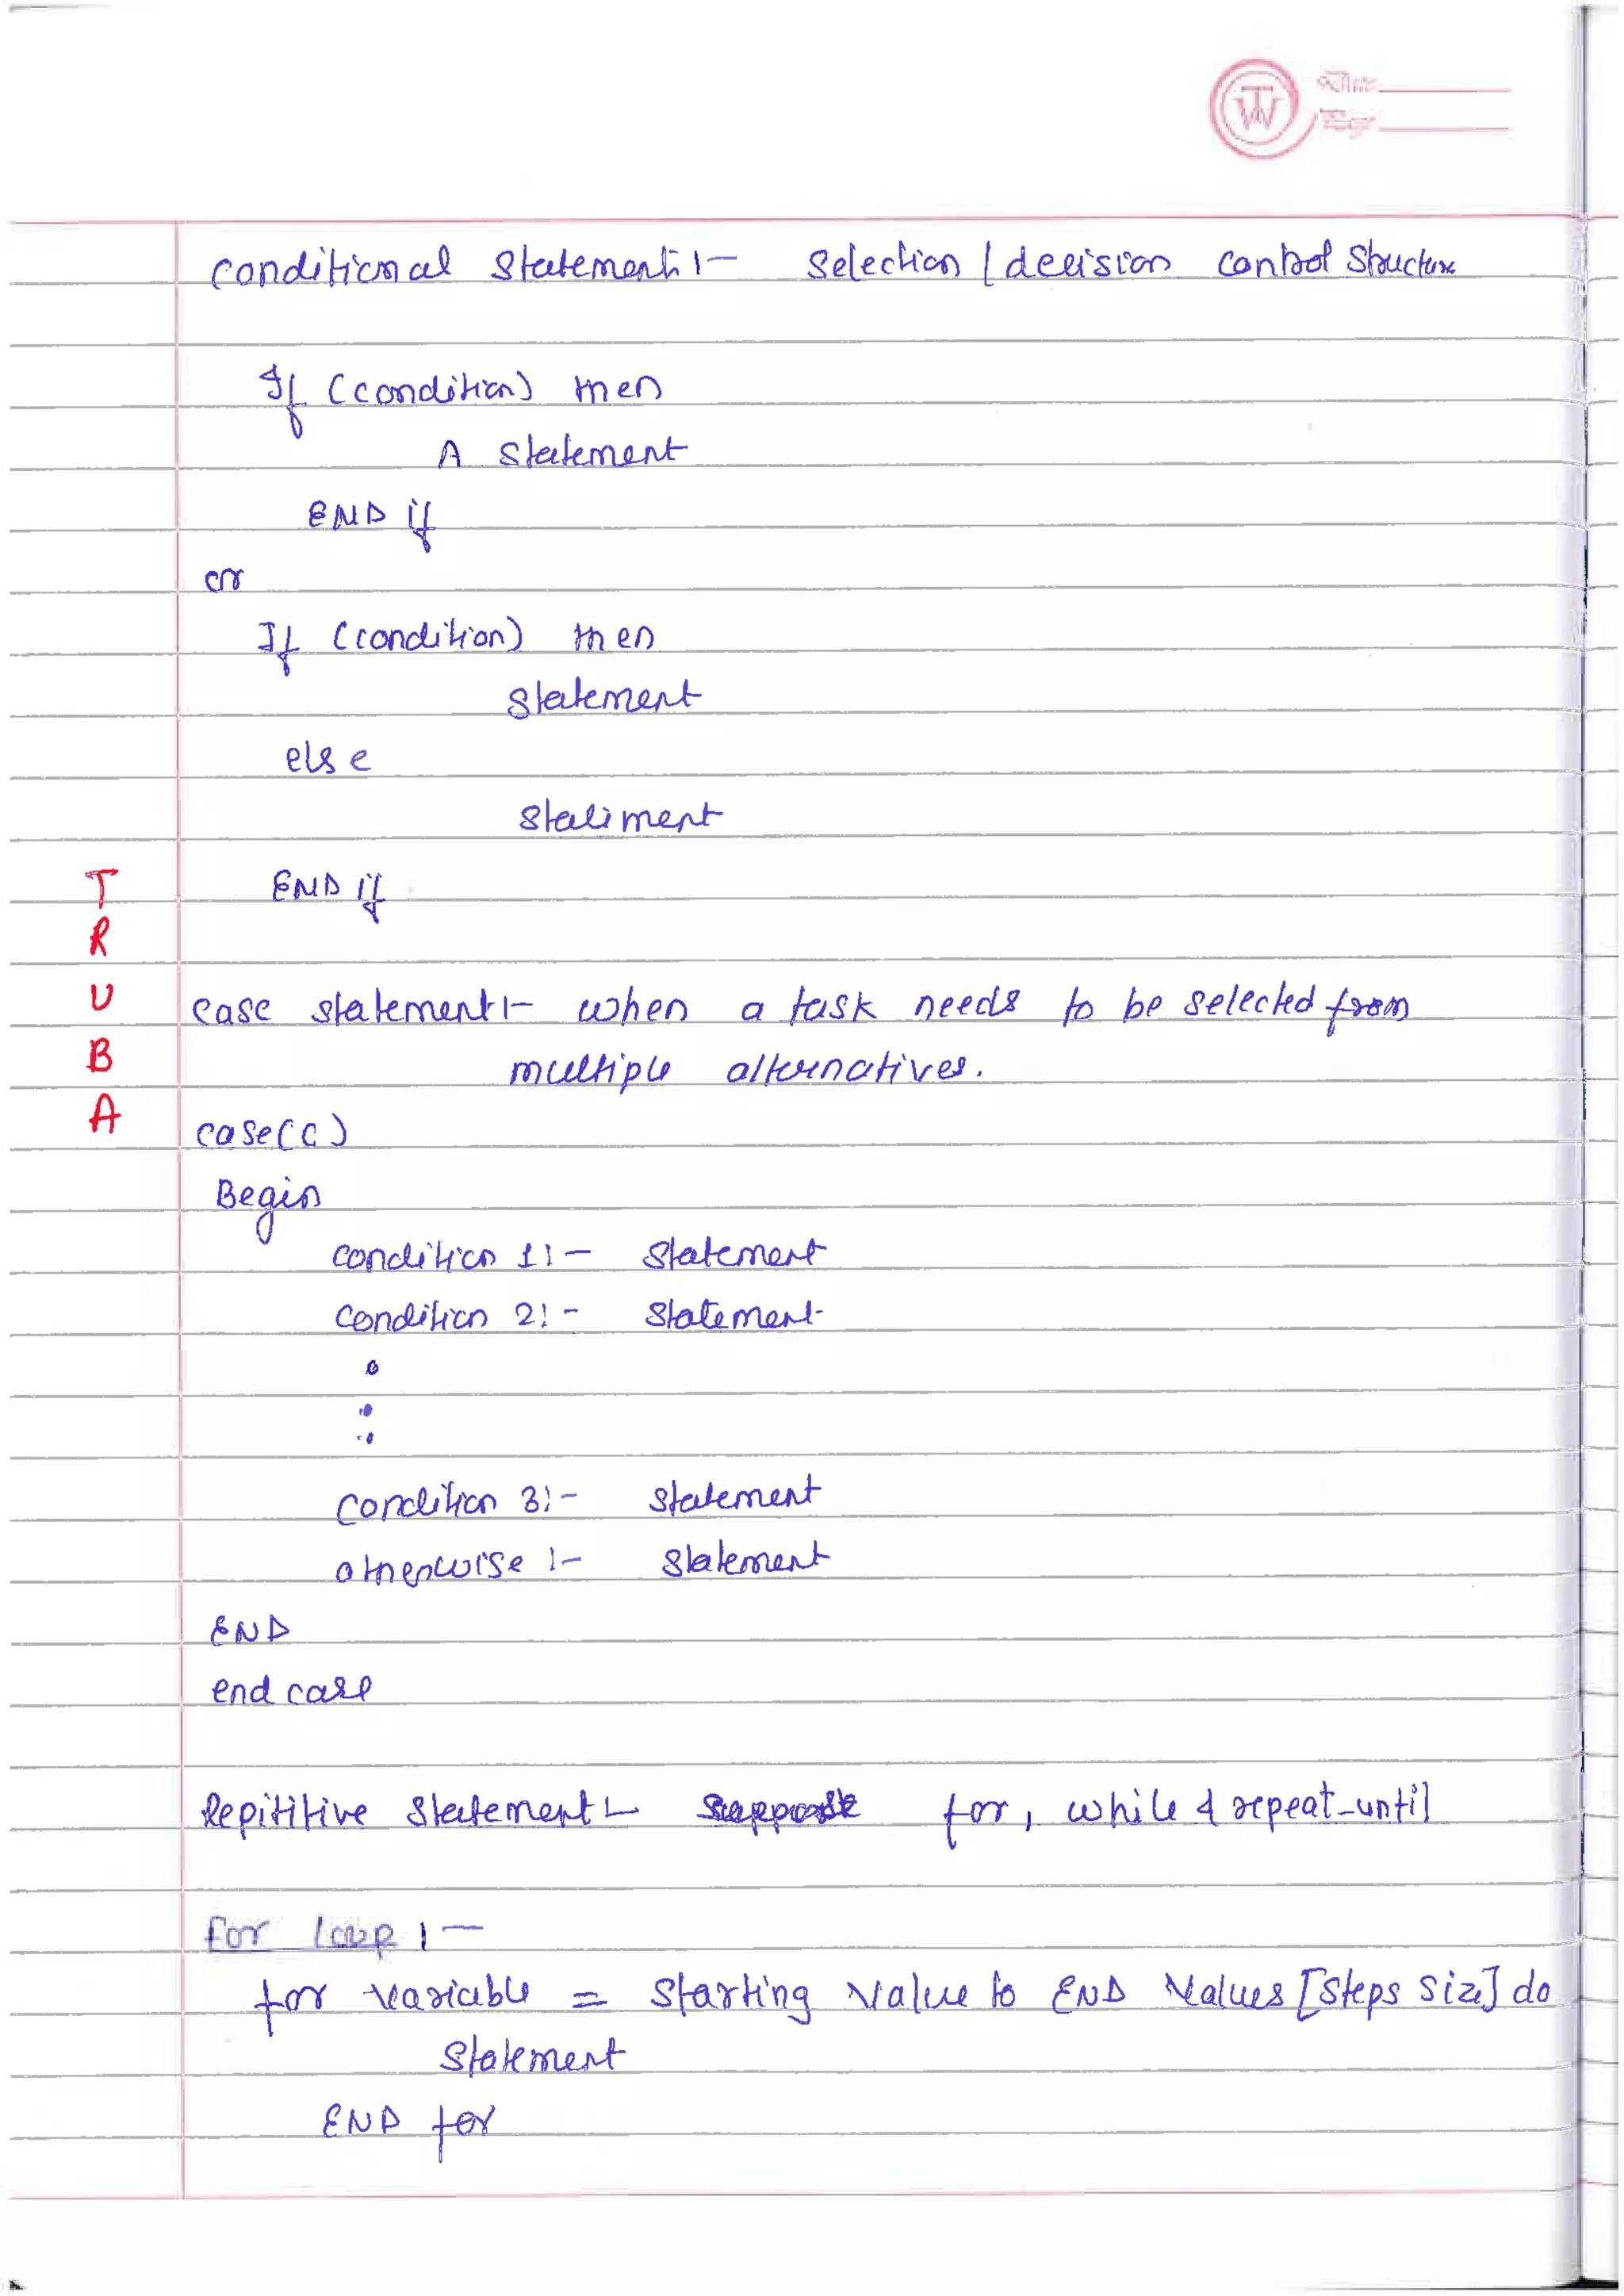 TW Date
Page
conditional Statement :- Selection / decision control Structure
If (condition) then
A statement
END if
or
If (condition) then
statement
else
statiment
END if
T
R
U
B
A
case statement :- when a task needs to be selected from
multiple alternatives.
case(c)
Begin
condition 1 :- statement
condition 2 :- statement
condition 3 :- statement
otherwise :- statement
END
end case
Repititive statement :- for, while & repeat-until
for loop :-
for variable = starting value to END values [steps size] do
statement
END for